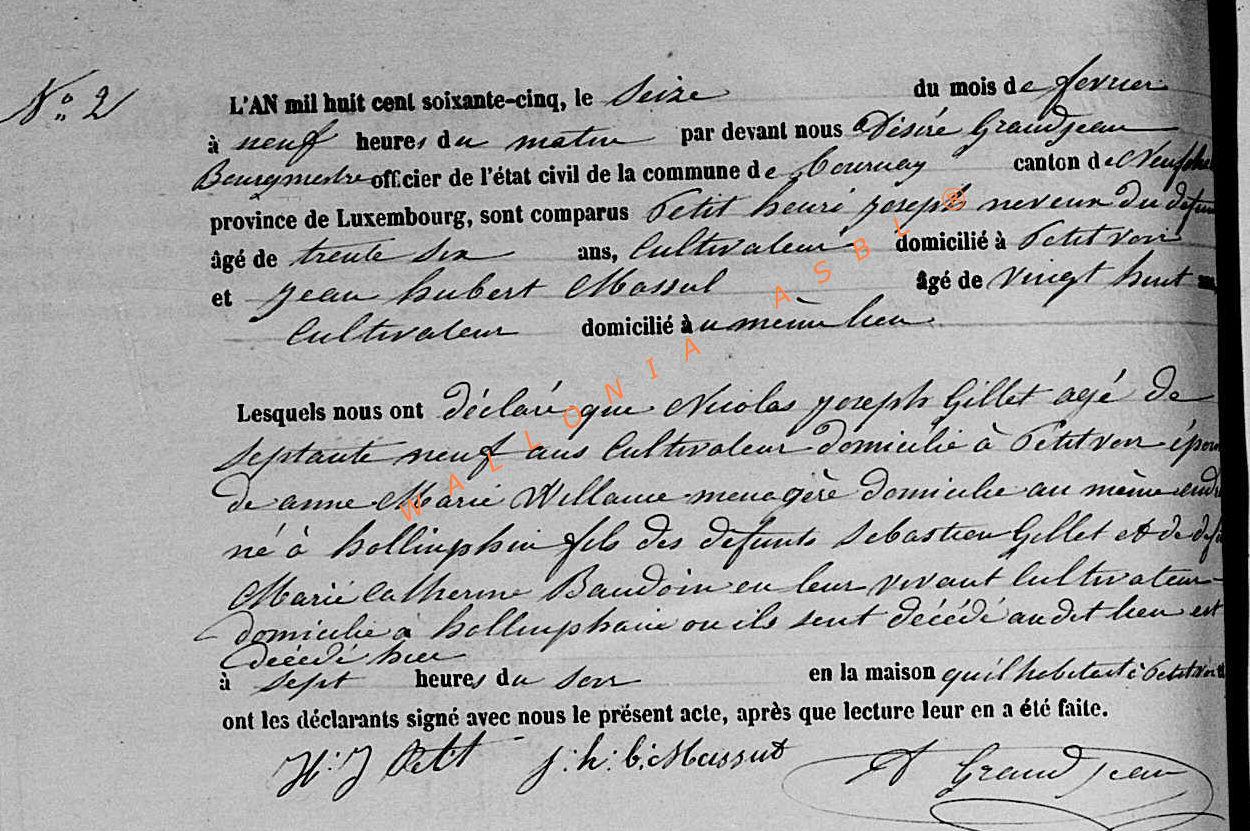 N° 2
L'AN mil huit cent soixante-cinq, le Seize du mois de fevrier
à neuf heures du matin par devant nous Désiré Grandjean
Bourgmestre officier de l'état civil de la commune de Tournay canton de Neufchâ
province de Luxembourg, sont comparus Petit henri joseph neveux du défun
âgé de trente six ans, Cultivateur domicilié à Petitvoir
et jean hubert Massul âgé de vingt huit
Cultivateur domicilié àu même lieu
Lesquels nous ont déclaré que Nicolas joseph Gillet agé de
Septante neuf ans Cultivateur domicilié à Petitvoir épou
de anne Marie Willaume menagère domicilie au même endr
né à hollinphin fils des defunts Sebastien Gillet et de def
Marie Catherine Baudoin en leur vivant Cultivateur
domicilie à hollinphaie ou ils sont décédé audit lieu est
décédé hier
à Sept heures du soir en la maison qu'il habitait à Petitvoir
ont les déclarants signé avec nous le présent acte, après que lecture leur en a été faite.
H: J Petit j: h: b: Massut D Grandjean
WALLONIA ASBL ®